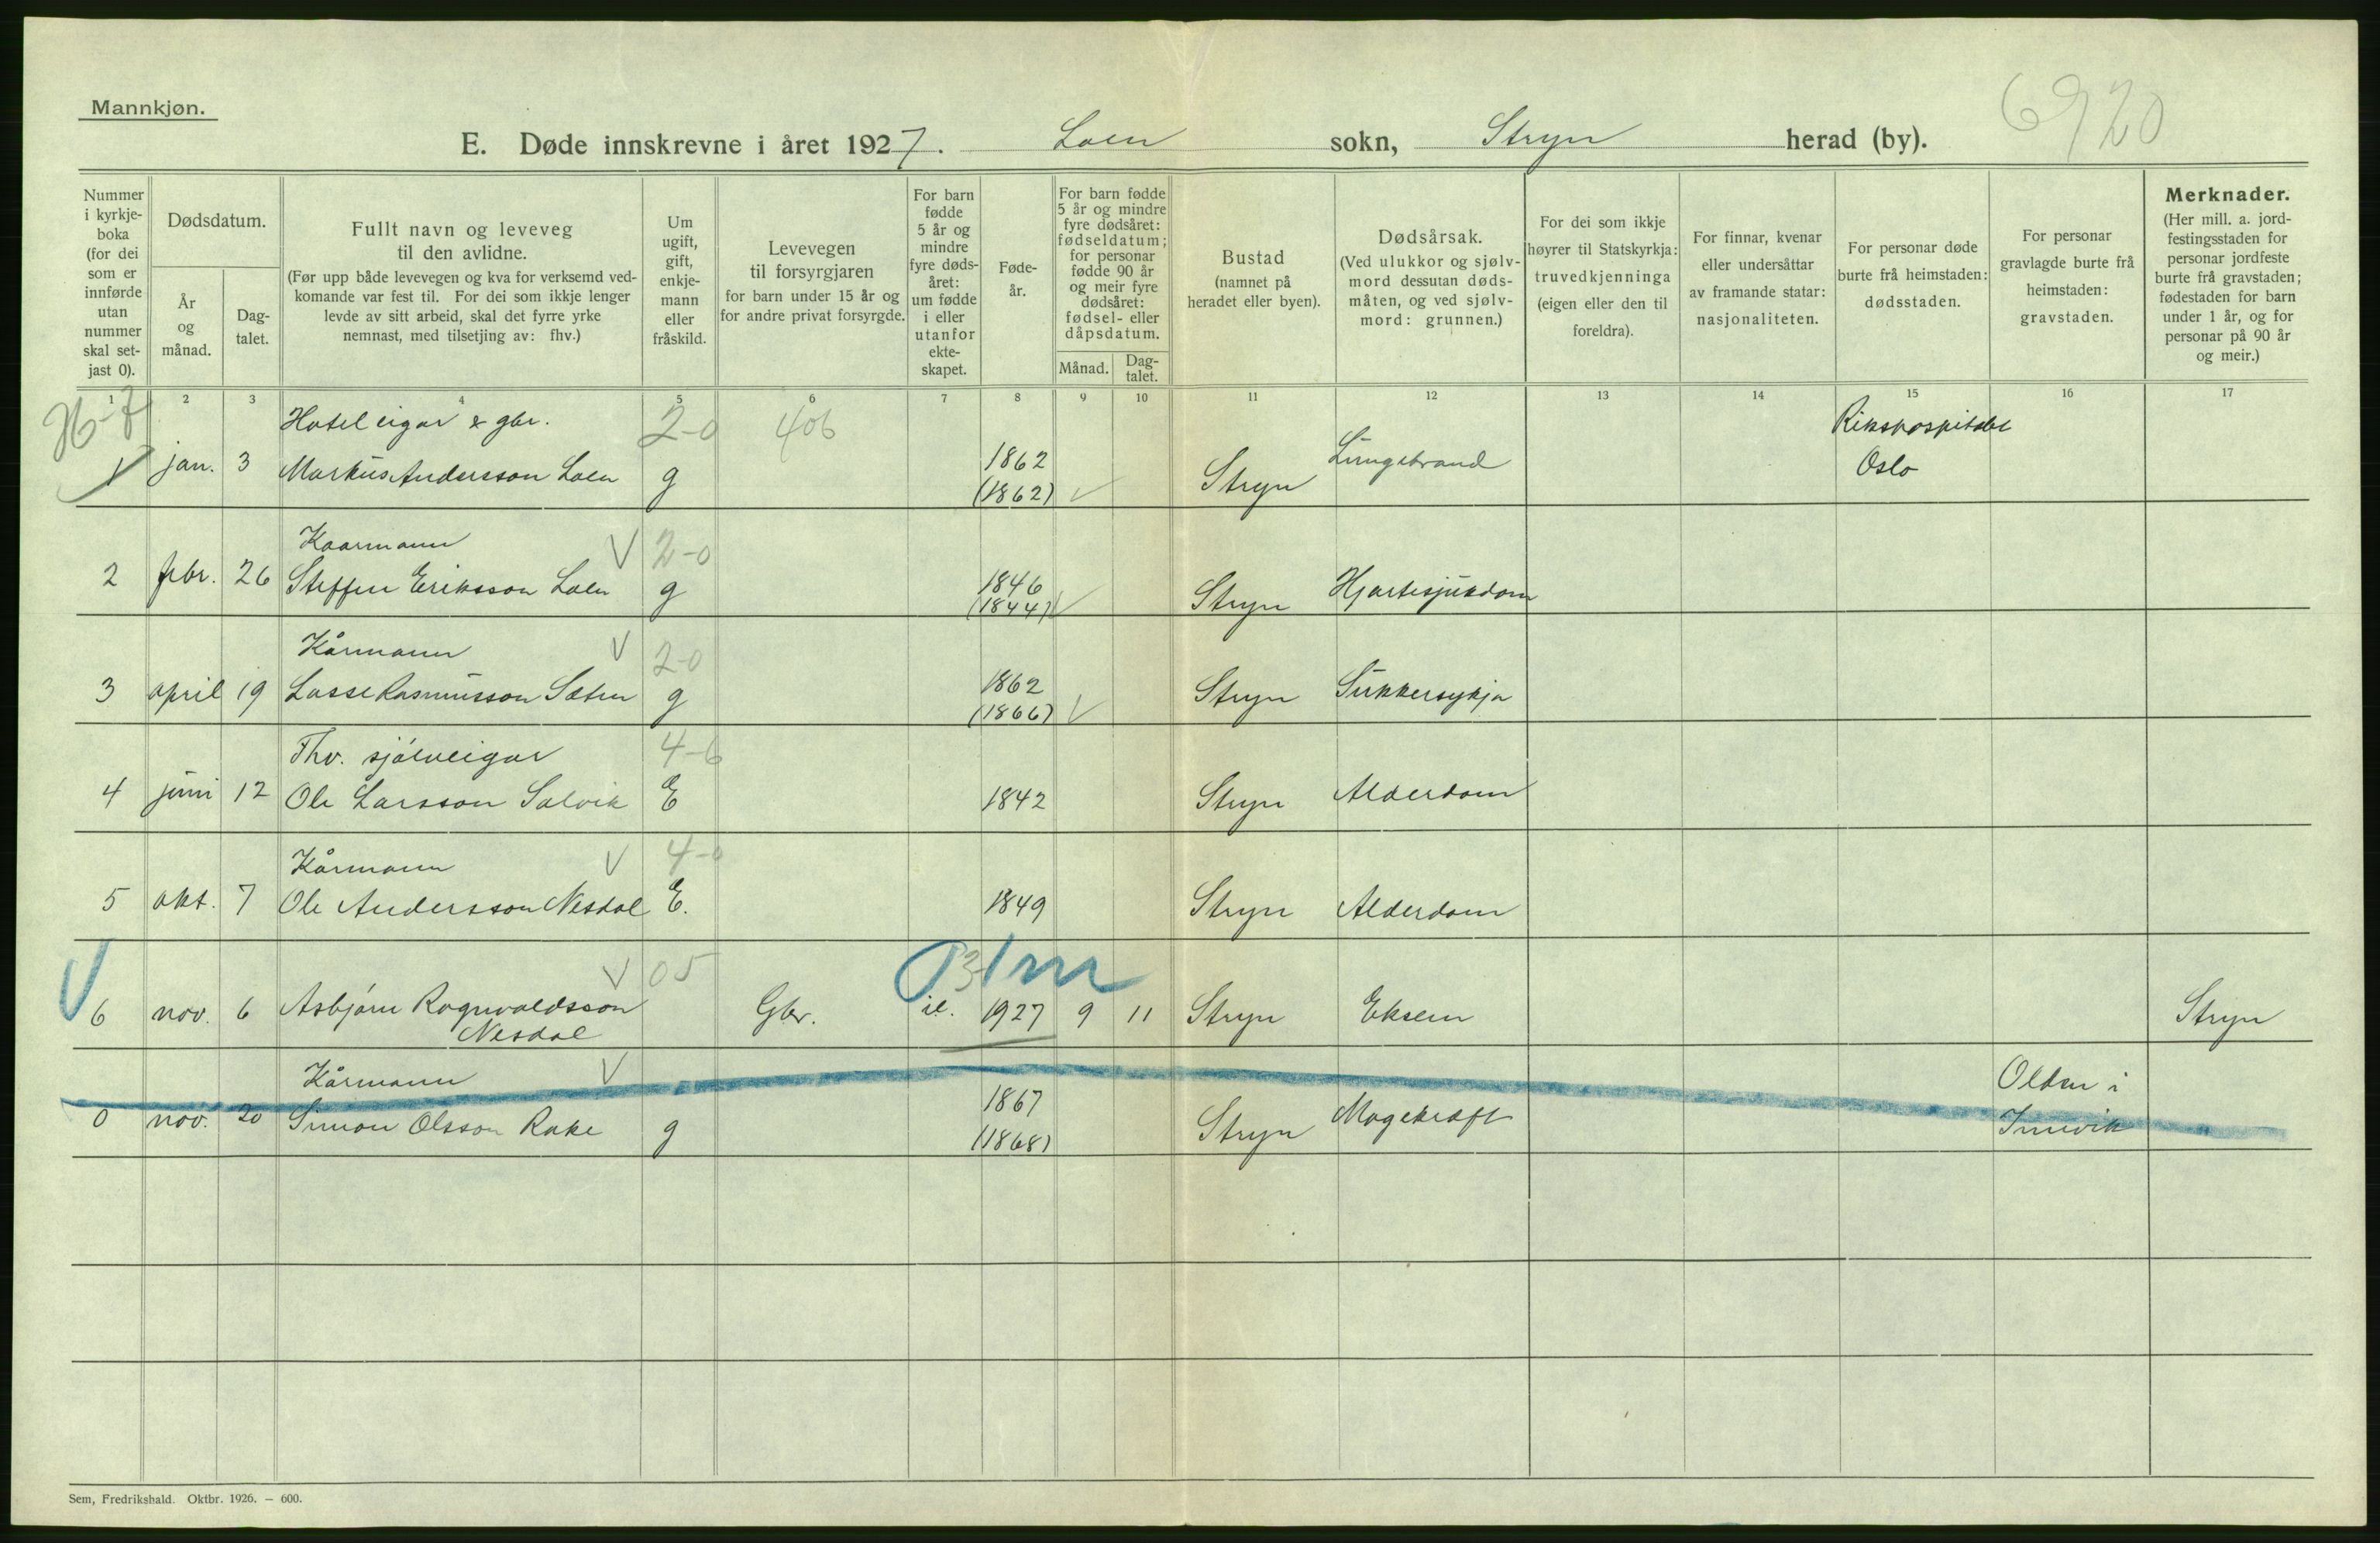 Mannkjøn.
6920
E. Døde innskrevne i året 1927. Loen sokn, Stryn herad (by).
Nummer i kyrkje-boka (for dei som er innførde utan nummer skal set-jast 0).
Dødsdatum.
År og månad.
Dag-talet.
Fullt navn og leveveg til den avlidne.
(Før upp både levevegen og kva for verksemd ved-komande var fest til. For dei som ikkje lenger levde av sitt arbeid, skal det fyrre yrke nemnast, med tilsetjing av: fhv.)
Um ugift, gift, enkje-mann eller fråskild.
Levevegen til forsyrgjaren for barn under 15 år og for andre privat forsyrgde.
For barn fødde 5 år og mindre fyre døds-året: um fødde i eller utanfor ekte-skapet.
Føde-år.
For barn fødde 5 år og mindre fyre dødsåret: fødseldatum; for personar fødde 90 år og meir fyre dødsåret: fødsel- eller dåpsdatum.
Månad.
Dag-talet.
Bustad (namnet på heradet eller byen).
Dødsårsak.
(Ved ulukkor og sjølv-mord dessutan døds-måten, og ved sjølv-mord: grunnen.)
For dei som ikkje høyrer til Statskyrkja: truvedkjenninga (eigen eller den til foreldra).
For finnar, kvenar eller undersåttar av framande statar: nasjonaliteten.
For personar døde burte frå heimstaden: dødsstaden.
For personar gravlagde burte frå heimstaden: gravstaden.
Merknader.
(Her mill. a. jord-festingsstaden for personar jordfeste burte frå gravstaden; fødestaden for barn under 1 år, og for personar på 90 år og meir.)
1 2 3 4 5 6 7 8 9 10 11 12 13 14 15 16 17
Hotel eigar & gbr. 2-0 406 Rikshospitalet
1 jan. 3 Markus Andersson Loen g 1862 (1862) Stryn Lungebrand Oslo
Kaarmann 2-0
2 febr. 26 Steffen Eriksson Loen g 1846 (1844) Stryn Hjartesjukdom
Kårmann 2-0
3 april 19 Lasse Rasmusson Sæten g 1862 (1866) Stryn Sukkersykja
Fhv. sjølveigar 4-6
4 juni 12 Ole Larsson Sølvik E 1842 Stryn Alderdom
Kårmann 4-0
5 okt. 7 Ole Andersson Nesdal E. 1849 Stryn Alderdom
05 1m
6 nov. 6 Asbjørn Ragnvaldsson Gbr. ie. 1927 9 11 Stryn Eksem Stryn
Nesdal
Kårmann 1867 Olden i
0 nov. 20 Simon Olsson Rake g (1868) Stryn Magekræft Innvik
Sem, Fredrikshald. Oktbr. 1926. – 600.